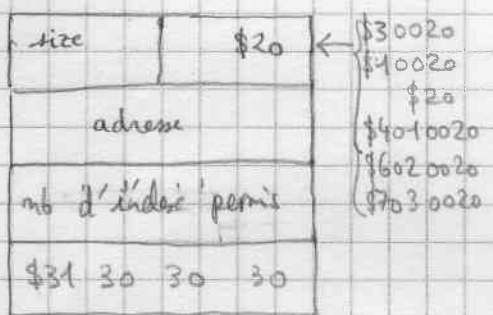 size $20
adresse
nb d'indexé permis
$31 30 30 30
$30020
$10020
$20
$4010020
$6020020
$7030020